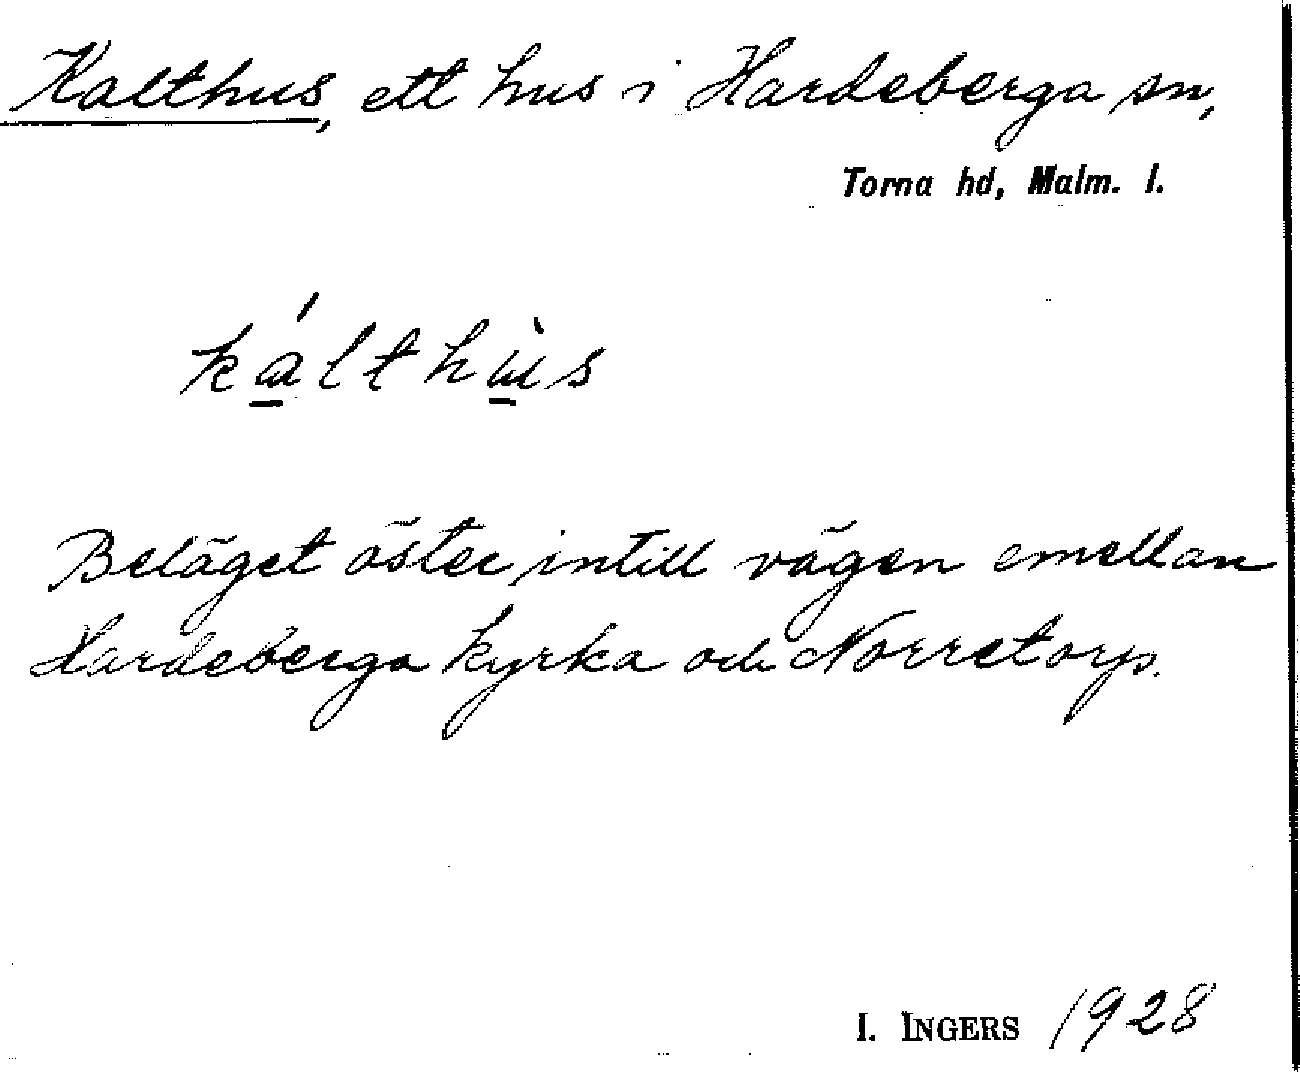 Kalthus, ett hus i Hardeberga sn,
Torna hd, Malm. l.
kálthùs
Beläget öster intill vägen emellan
Hardeberga kyrka och Norretorp.
I. INGERS 1928